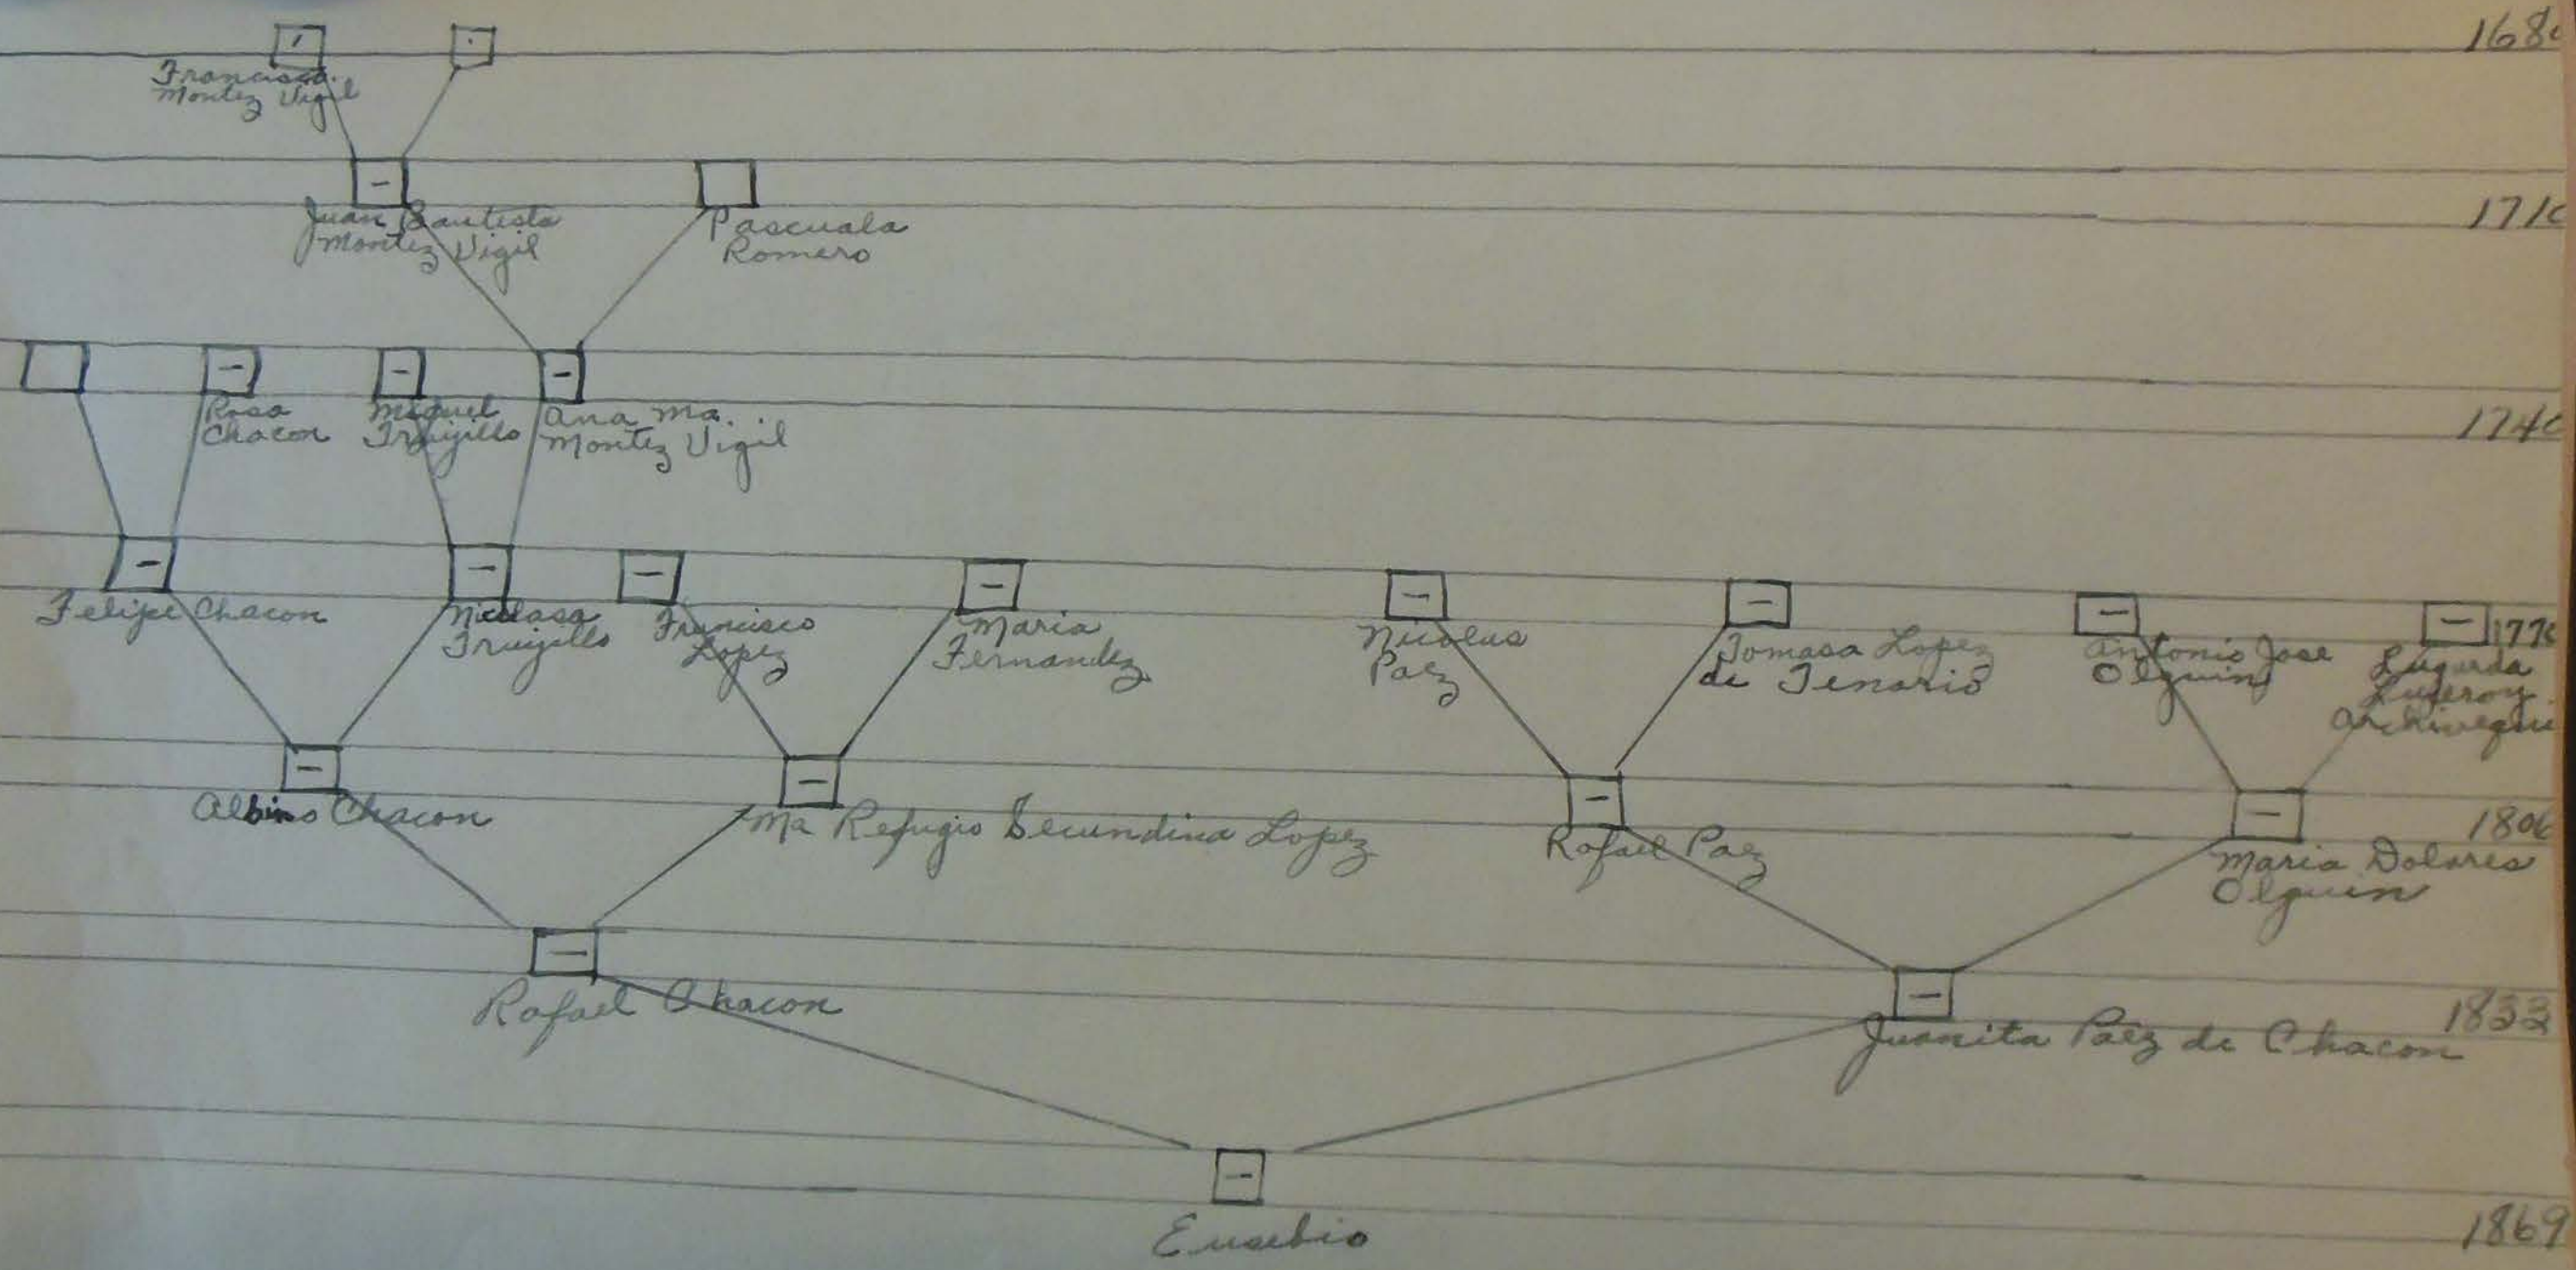 168
Francisco
Montez Vigil
171
Juan Bautista
Montez Vigil
Pascuala
Romero
174
Rosa
Chacon
Miguel
Trujillo
Ana Ma.
Montez Vigil
177
Felipe Chacon
Nicolasa
Trujillo
Francisco
Lopez
Maria
Fernandez
Nicolas
Paez
Tomasa Lopez
de Tenorio
Antonio Jose
Olguin
180
Albino Chacon
Ma Refugio Secundina Lopez
Rafael Paez
Maria Dolores
Olguin
1833
Rafael Chacon
Juanita Paez de Chacon
1869
Eusebio